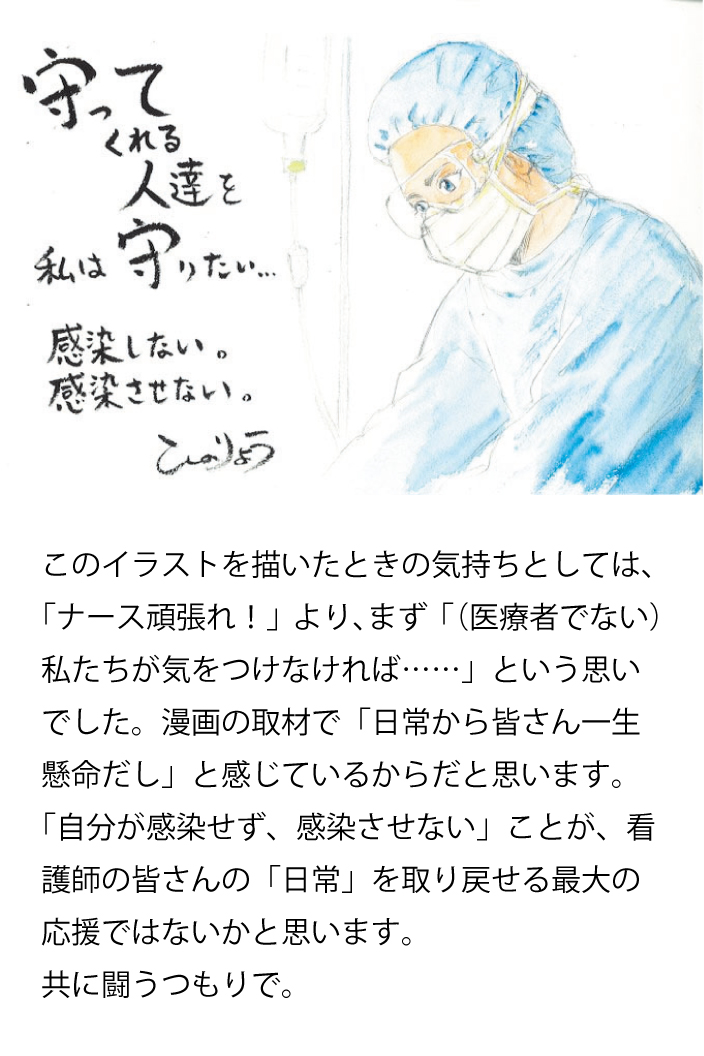 守って
くれる
人達を
私は守りたい…
感染しない。
感染させない。
こしのりょう
このイラストを描いたときの気持ちとしては、
「ナース頑張れ！」より、まず「（医療者でない）
私たちが気をつけなければ……」という思い
でした。漫画の取材で「日常から皆さん一生
懸命だし」と感じているからだと思います。
「自分が感染せず、感染させない」ことが、看
護師の皆さんの「日常」を取り戻せる最大の
応援ではないかと思います。
共に闘うつもりで。